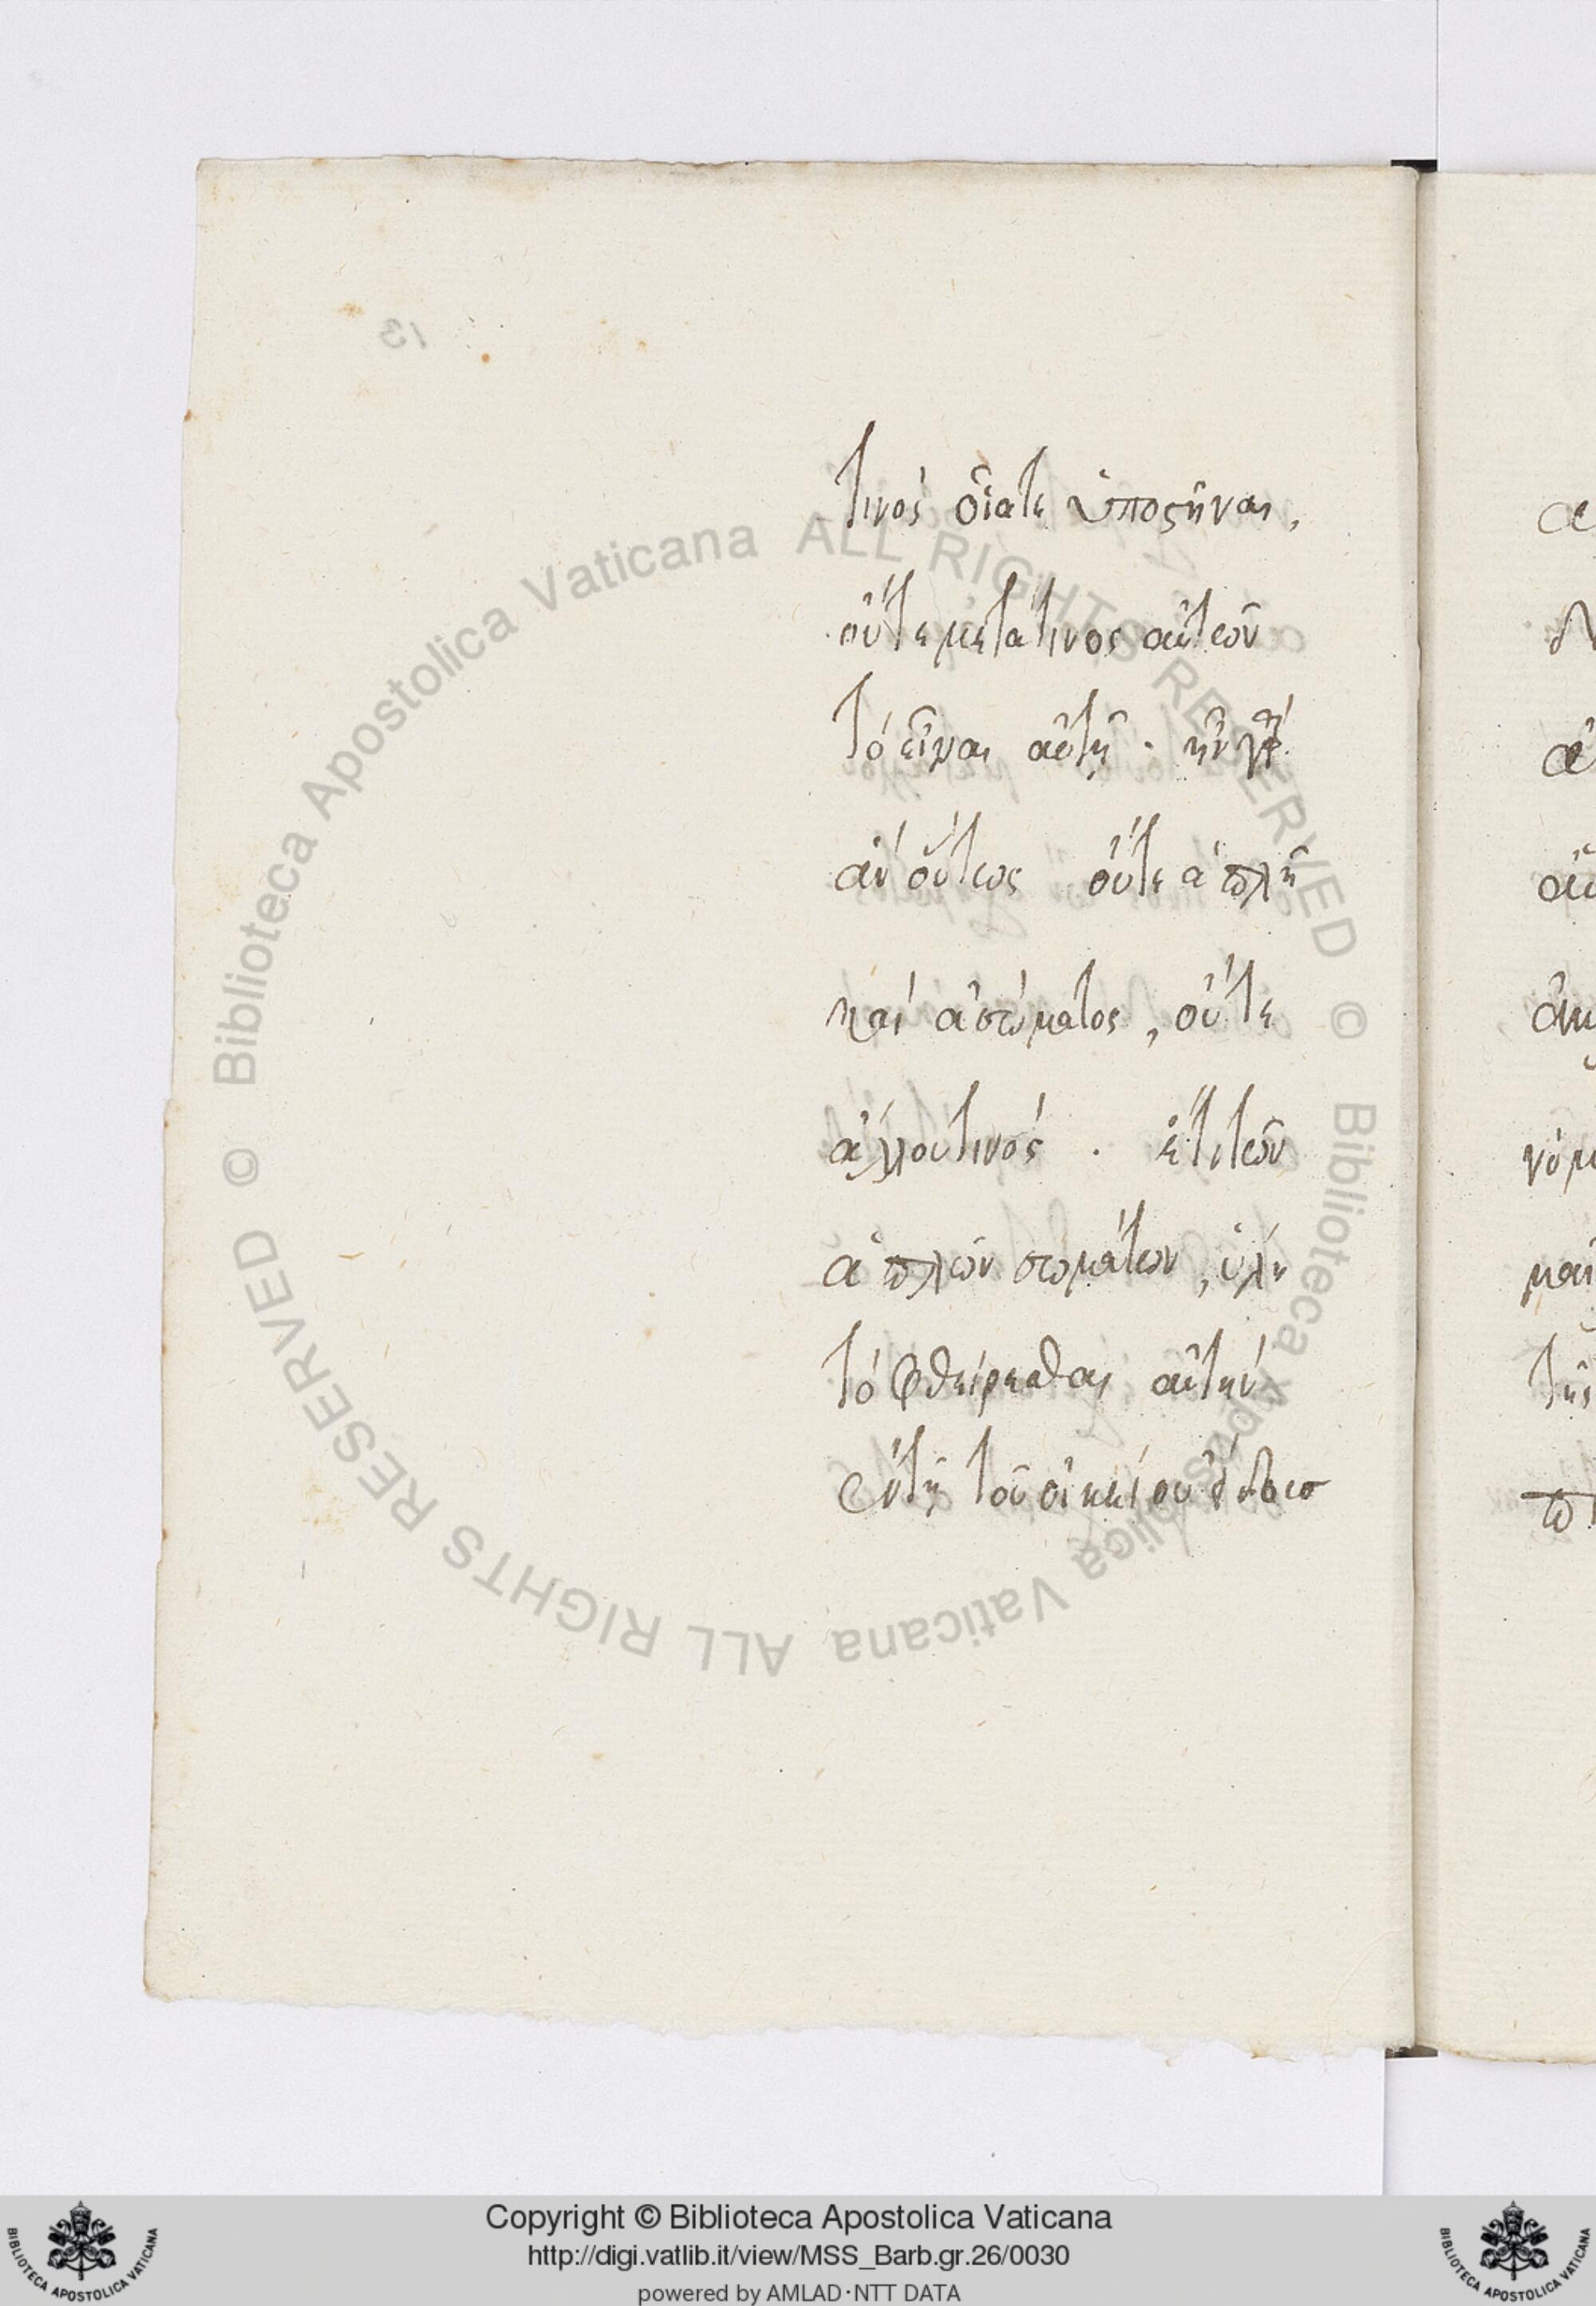 τινός οἷατε ὑποϛῆναι,
οὔτε μετά τινος αὐτῶν
τό εἶναι αὐτῇ · ἦν γὰρ
ἀν οὕτως οὔτε ἁπλῆ
καί ἀσώματος, οὔτε
ἀλλουτινός · ἔτι τῶν
ἁπλῶν σωμάτων, ὑλη
τό φθείρεσθαι αὐτήν
ἐν τῇ τοῦ οἰκείου
13
© Biblioteca Apostolica Vaticana ALL RIGHTS RESERVED © Biblioteca Apostolica Vaticana ALL RIGHTS RESERVED
Copyright © Biblioteca Apostolica Vaticana
http://digi.vatlib.it/view/MSS_Barb.gr.26/0030
powered by AMLAD·NTT DATA
BIBLIOTECA APOSTOLICA VATICANA
BIBLIOTECA APOSTOLICA VATICANA